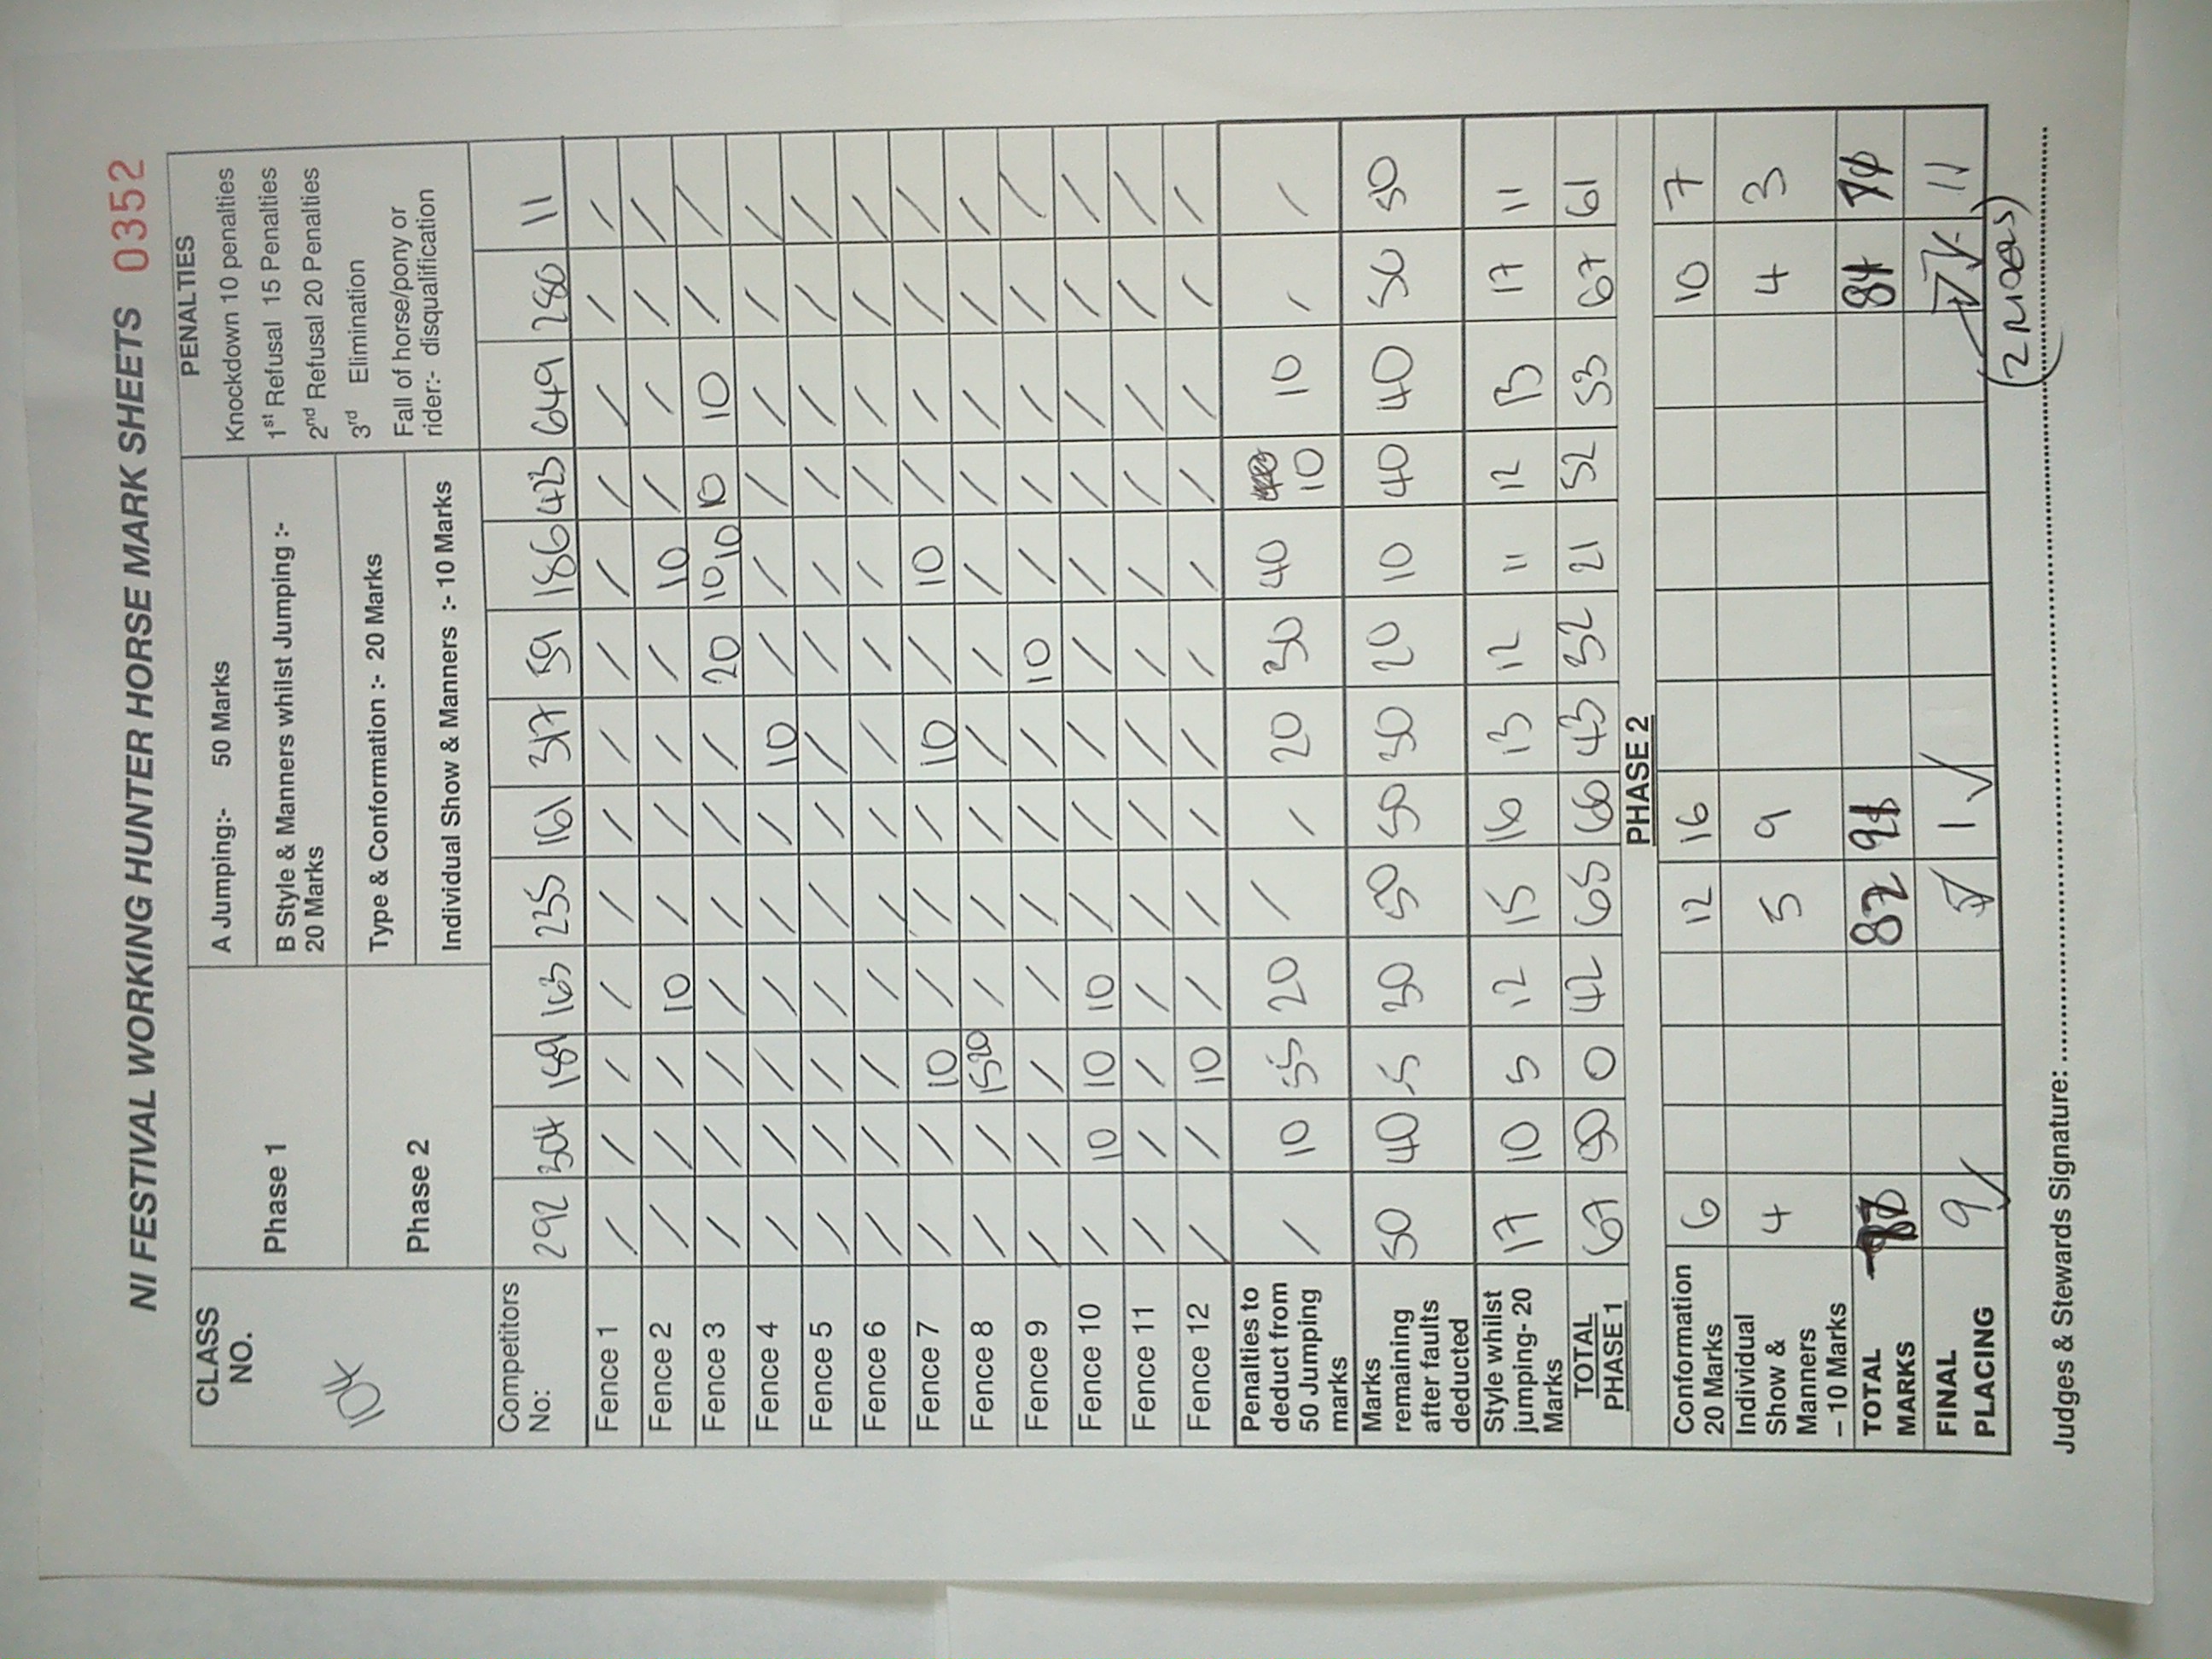 NI FESTIVAL WORKING HUNTER HORSE MARK SHEETS 03352
CLASS NO.
104
Phase 1
A Jumping:- 50 Marks
B Style & Manners whilst Jumping :- 20 Marks
Phase 2
Type & Conformation :- 20 Marks
Individual Show & Manners :- 10 Marks
PENALTIES
Knockdown 10 penalties
1st Refusal 15 Penalties
2nd Refusal 20 Penalties
3rd Elimination
Fall of horse/pony or
rider:- disqualification
Competitors No: 292 304 189 163 235 161 317 59 186 423 649 280 11
Fence 1 / / / / / / / / / / / / /
Fence 2 / / / 10 / / / / 10 / / / /
Fence 3 / / / / / / / 20 10 10 10 10 / /
Fence 4 / / / / / / 10 / / / / / /
Fence 5 / / / / / / / / / / / / /
Fence 6 / / / / / / / / / / / / /
Fence 7 / / 10 / / / 10 / 10 / / / /
Fence 8 / / 15 20 / / / / / / / / / /
Fence 9 / / / / / / / 10 / / / / /
Fence 10 / 10 10 10 / / / / / / / / /
Fence 11 / / / / / / / / / / / / /
Fence 12 / / 10 / / / / / / / / / /
Penalties to deduct from 50 Jumping marks / 10 55 20 / / 20 30 40 10 10 / /
Marks remaining after faults deducted 50 40 -5 30 50 50 30 20 10 40 40 50 50
Style whilst jumping- 20 Marks 17 10 5 12 15 16 13 12 11 12 13 17 11
TOTAL PHASE 1 67 50 0 42 65 66 43 32 21 52 53 67 61
PHASE 2
Conformation 20 Marks 6 12 16 10 7
Individual Show & Manners – 10 Marks 4 5 9 4 3
TOTAL MARKS 82 91 81
FINAL PLACING 9 1 11
Judges & Stewards Signature: